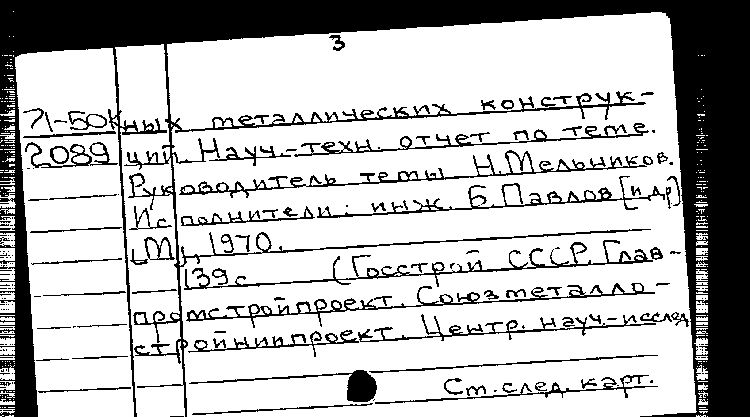 3
71-50К ных металлических конструк-
2089 ций. Науч.-техн. отчет по теме.
Руководитель темы Н.Мельников.
Исполнители: инж. Б.Павлов [и др]
[М], 1970.
139с. (Госстрой СССР. Глав-
промстройпроект. Союзметалло-
стройниипроект. Центр. науч.-исслед
См.след. карт.